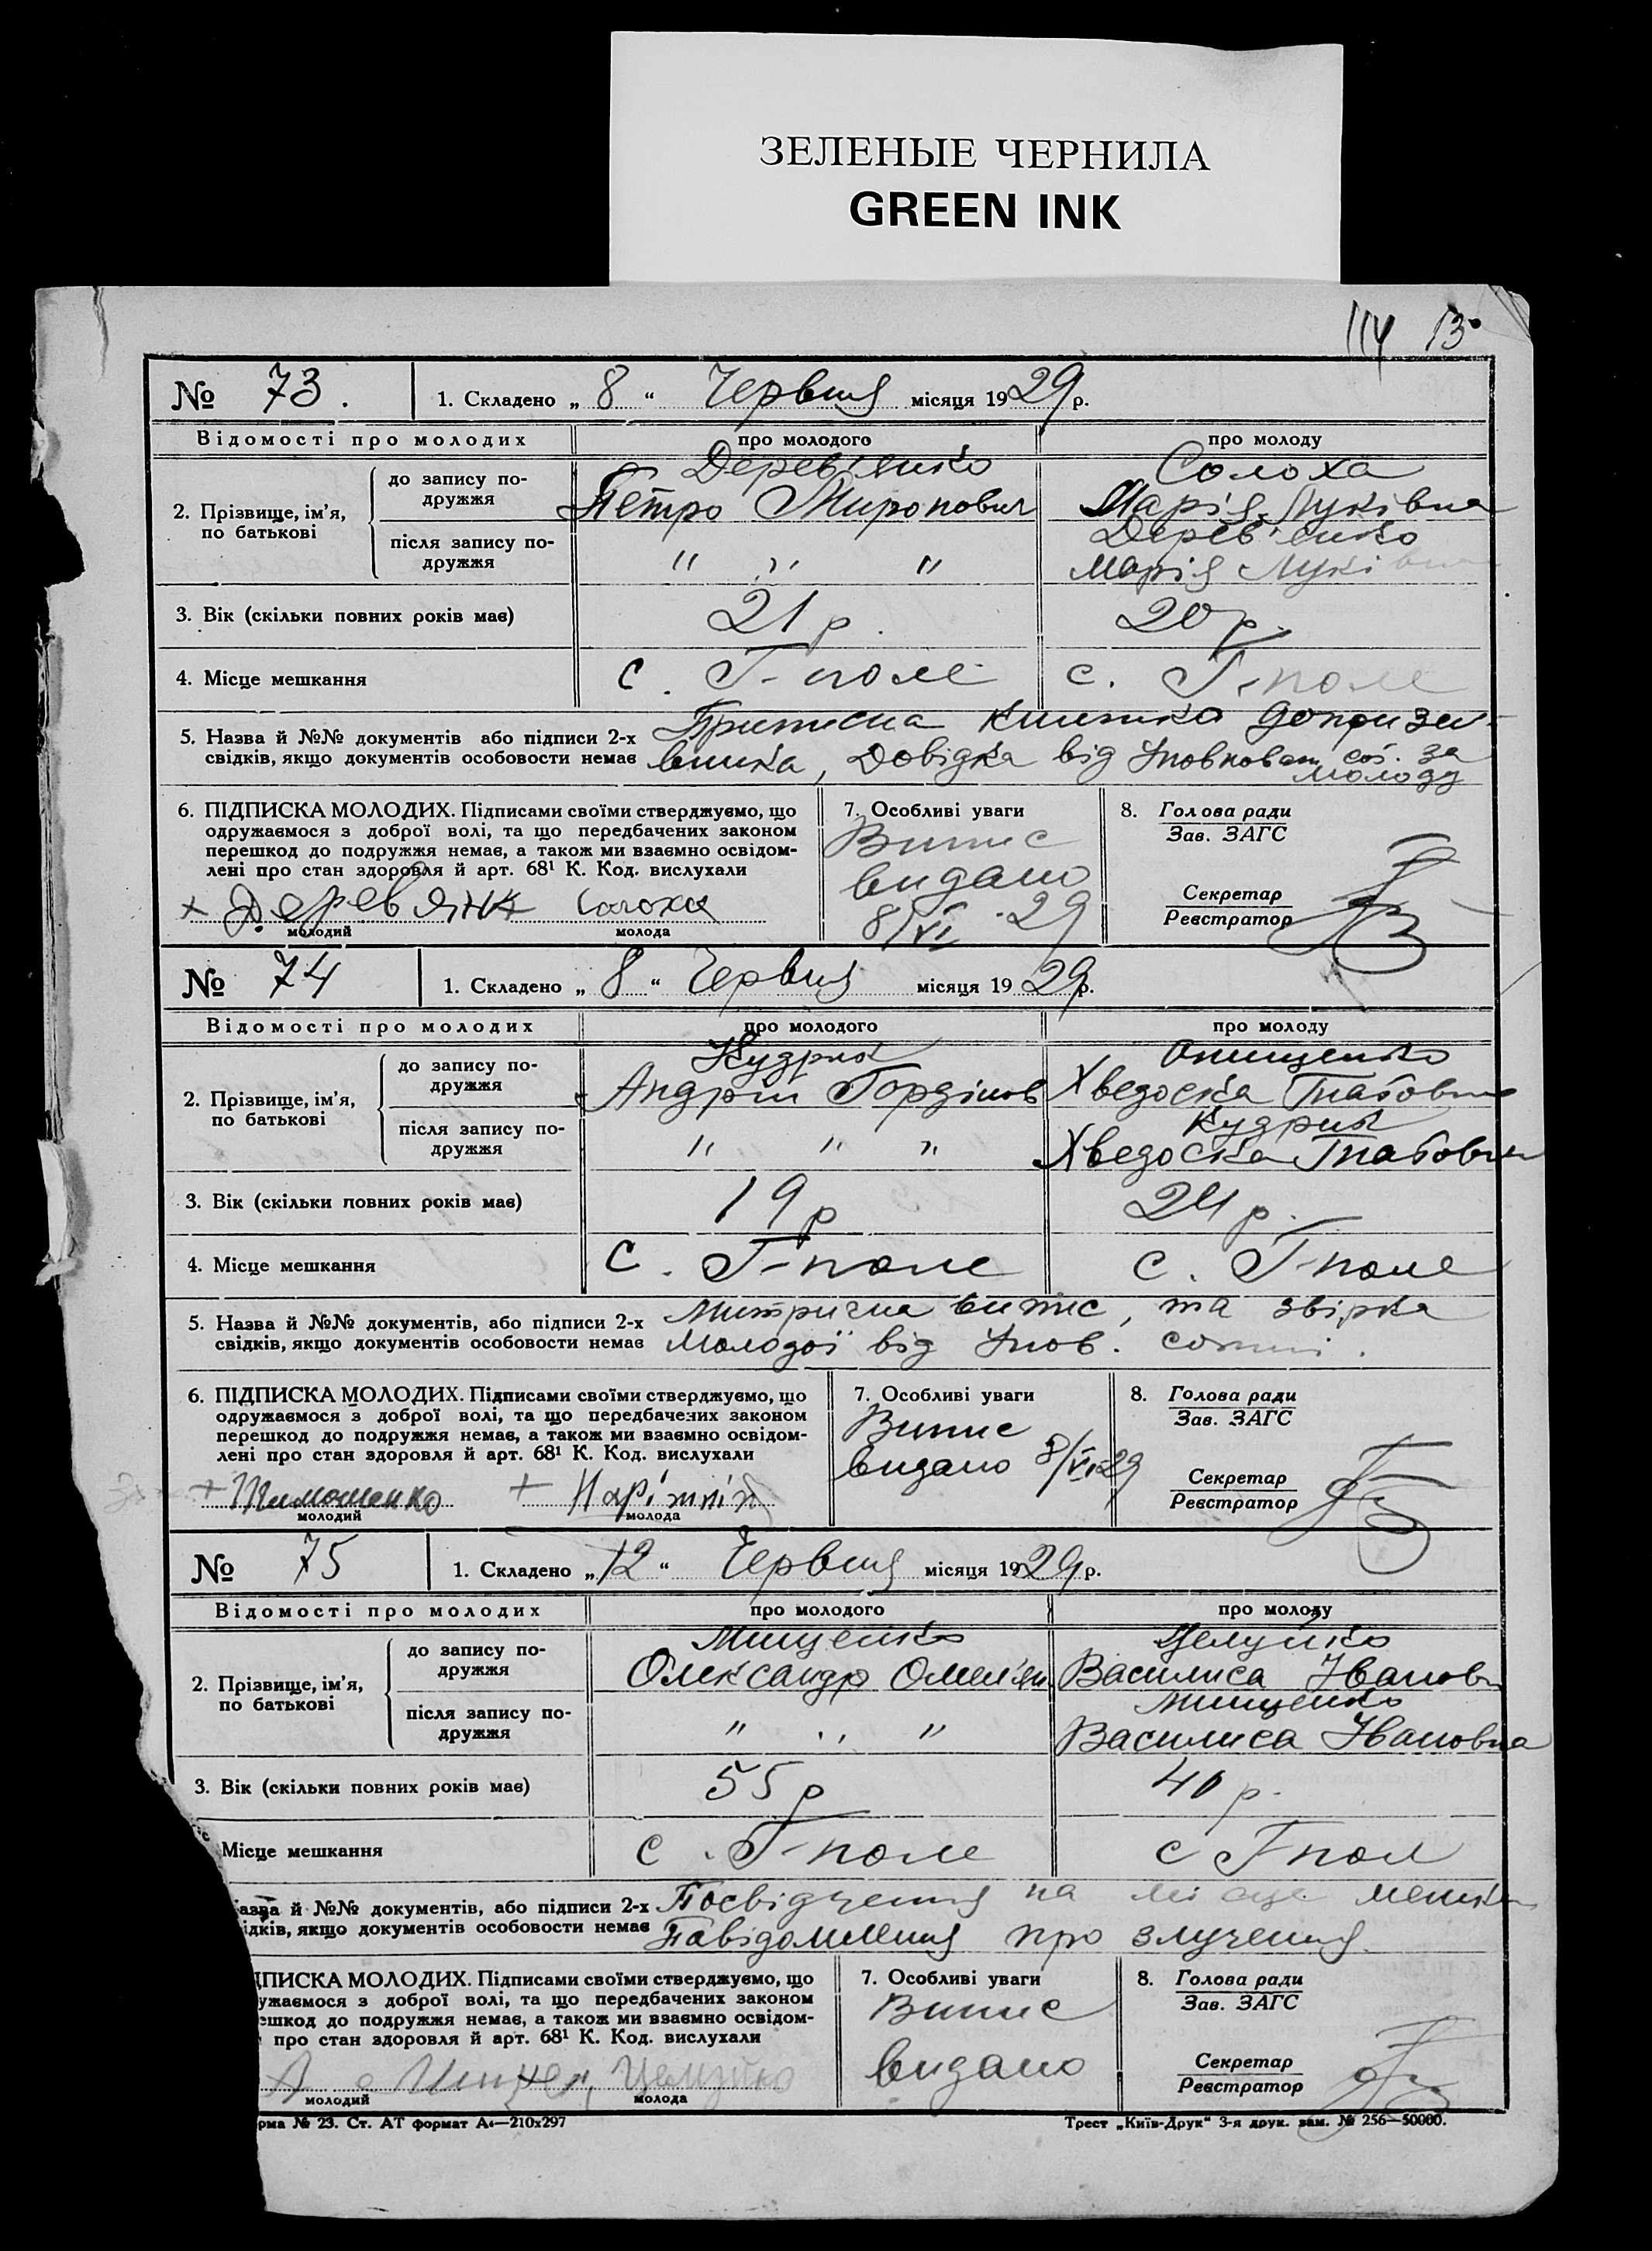 ЗЕЛЕНЫЕ ЧЕРНИЛА
GREEN INK
114 13
№ 73. 1. Складено „ 8 “ Червня місяця 1929 р.
Відомості про молодих про молодого про молоду
2. Прізвище, ім’я, по батькові
до запису подружжя
Дерев'янко
Петро Миронович
Солоха
Марія Луківна
після запису подружжя
" " "
Дерев'янко
Марія Луківна
3. Вік (скільки повних років має) 21 р. 20 р.
4. Місце мешкання с. Г-поле с. Г-поле
5. Назва й №№ документів або підписи 2-х Приписна книжка допризи-
свідків, якщо документів особовости немає вника, Довідка від за
молоду
6. ПІДПИСКА МОЛОДИХ. Підписами своїми стверджуємо, що
одружаємося з доброї волі, та що передбачених законом
перешкод до подружжя немає, а також ми взаємно освідом-
лені про стан здоровля й арт. 68¹ К. Код. вислухали
+ Деревянк Солоха
молодий молода
7. Особливі уваги
Випис
видано
8/VI-29
8. Голова ради
Зав. ЗАГС
Секретар
Реєстратор
№ 74 1. Складено „ 8 “ Червня місяця 1929 р.
Відомості про молодих про молодого про молоду
2. Прізвище, ім’я, по батькові
до запису подружжя
Кудря
Андрій Гордієв
Онищенко
Хведоска
після запису подружжя
" " "
Кудря
Хведоска
3. Вік (скільки повних років має) 19 р 24 р.
4. Місце мешкання с. Г-поле с. Г-поле
5. Назва й №№ документів, або підписи 2-х Митрична випис, та звірка
свідків, якщо документів особовости немає молодої від Упов. сотні.
6. ПІДПИСКА МОЛОДИХ. Підписами своїми стверджуємо, що
одружаємося з доброї волі, та що передбачених законом
перешкод до подружжя немає, а також ми взаємно освідом-
лені про стан здоровля й арт. 68¹ К. Код. вислухали
+ Тимошенко +
молодий молода
7. Особливі уваги
Випис
видано 8/VI-29
8. Голова ради
Зав. ЗАГС
Секретар
Реєстратор
№ 75 1. Складено „ 12 “ Червня місяця 1929 р.
Відомості про молодих про молодого про молоду
2. Прізвище, ім’я, по батькові
до запису подружжя
Мищенко
Олександр Омелян
Целуйко
Василиса Іванов
після запису подружжя
" " "
Мищенко
Василиса Івановна
3. Вік (скільки повних років має) 55 р 40 р.
Місце мешкання с. Г-поле с Г-пол
азва й №№ документів, або підписи 2-х Посвідчення на місце мешкан
ідків, якщо документів особовости немає Повідомлення про злучення
ДПИСКА МОЛОДИХ. Підписами своїми стверджуємо, що
ужаємося з доброї волі, та що передбачених законом
ешкод до подружжя немає, а також ми взаємно освідом-
про стан здоровля й арт. 68¹ К. Код. вислухали
Целуйко
молодий молода
7. Особливі уваги
Випис
видано
8. Голова ради
Зав. ЗАГС
Секретар
Реєстратор
рма № 23. Ст. АТ формат А₄—210х297 Трест „Київ-Друк“ 3-я друк. зам. № 256—50000.